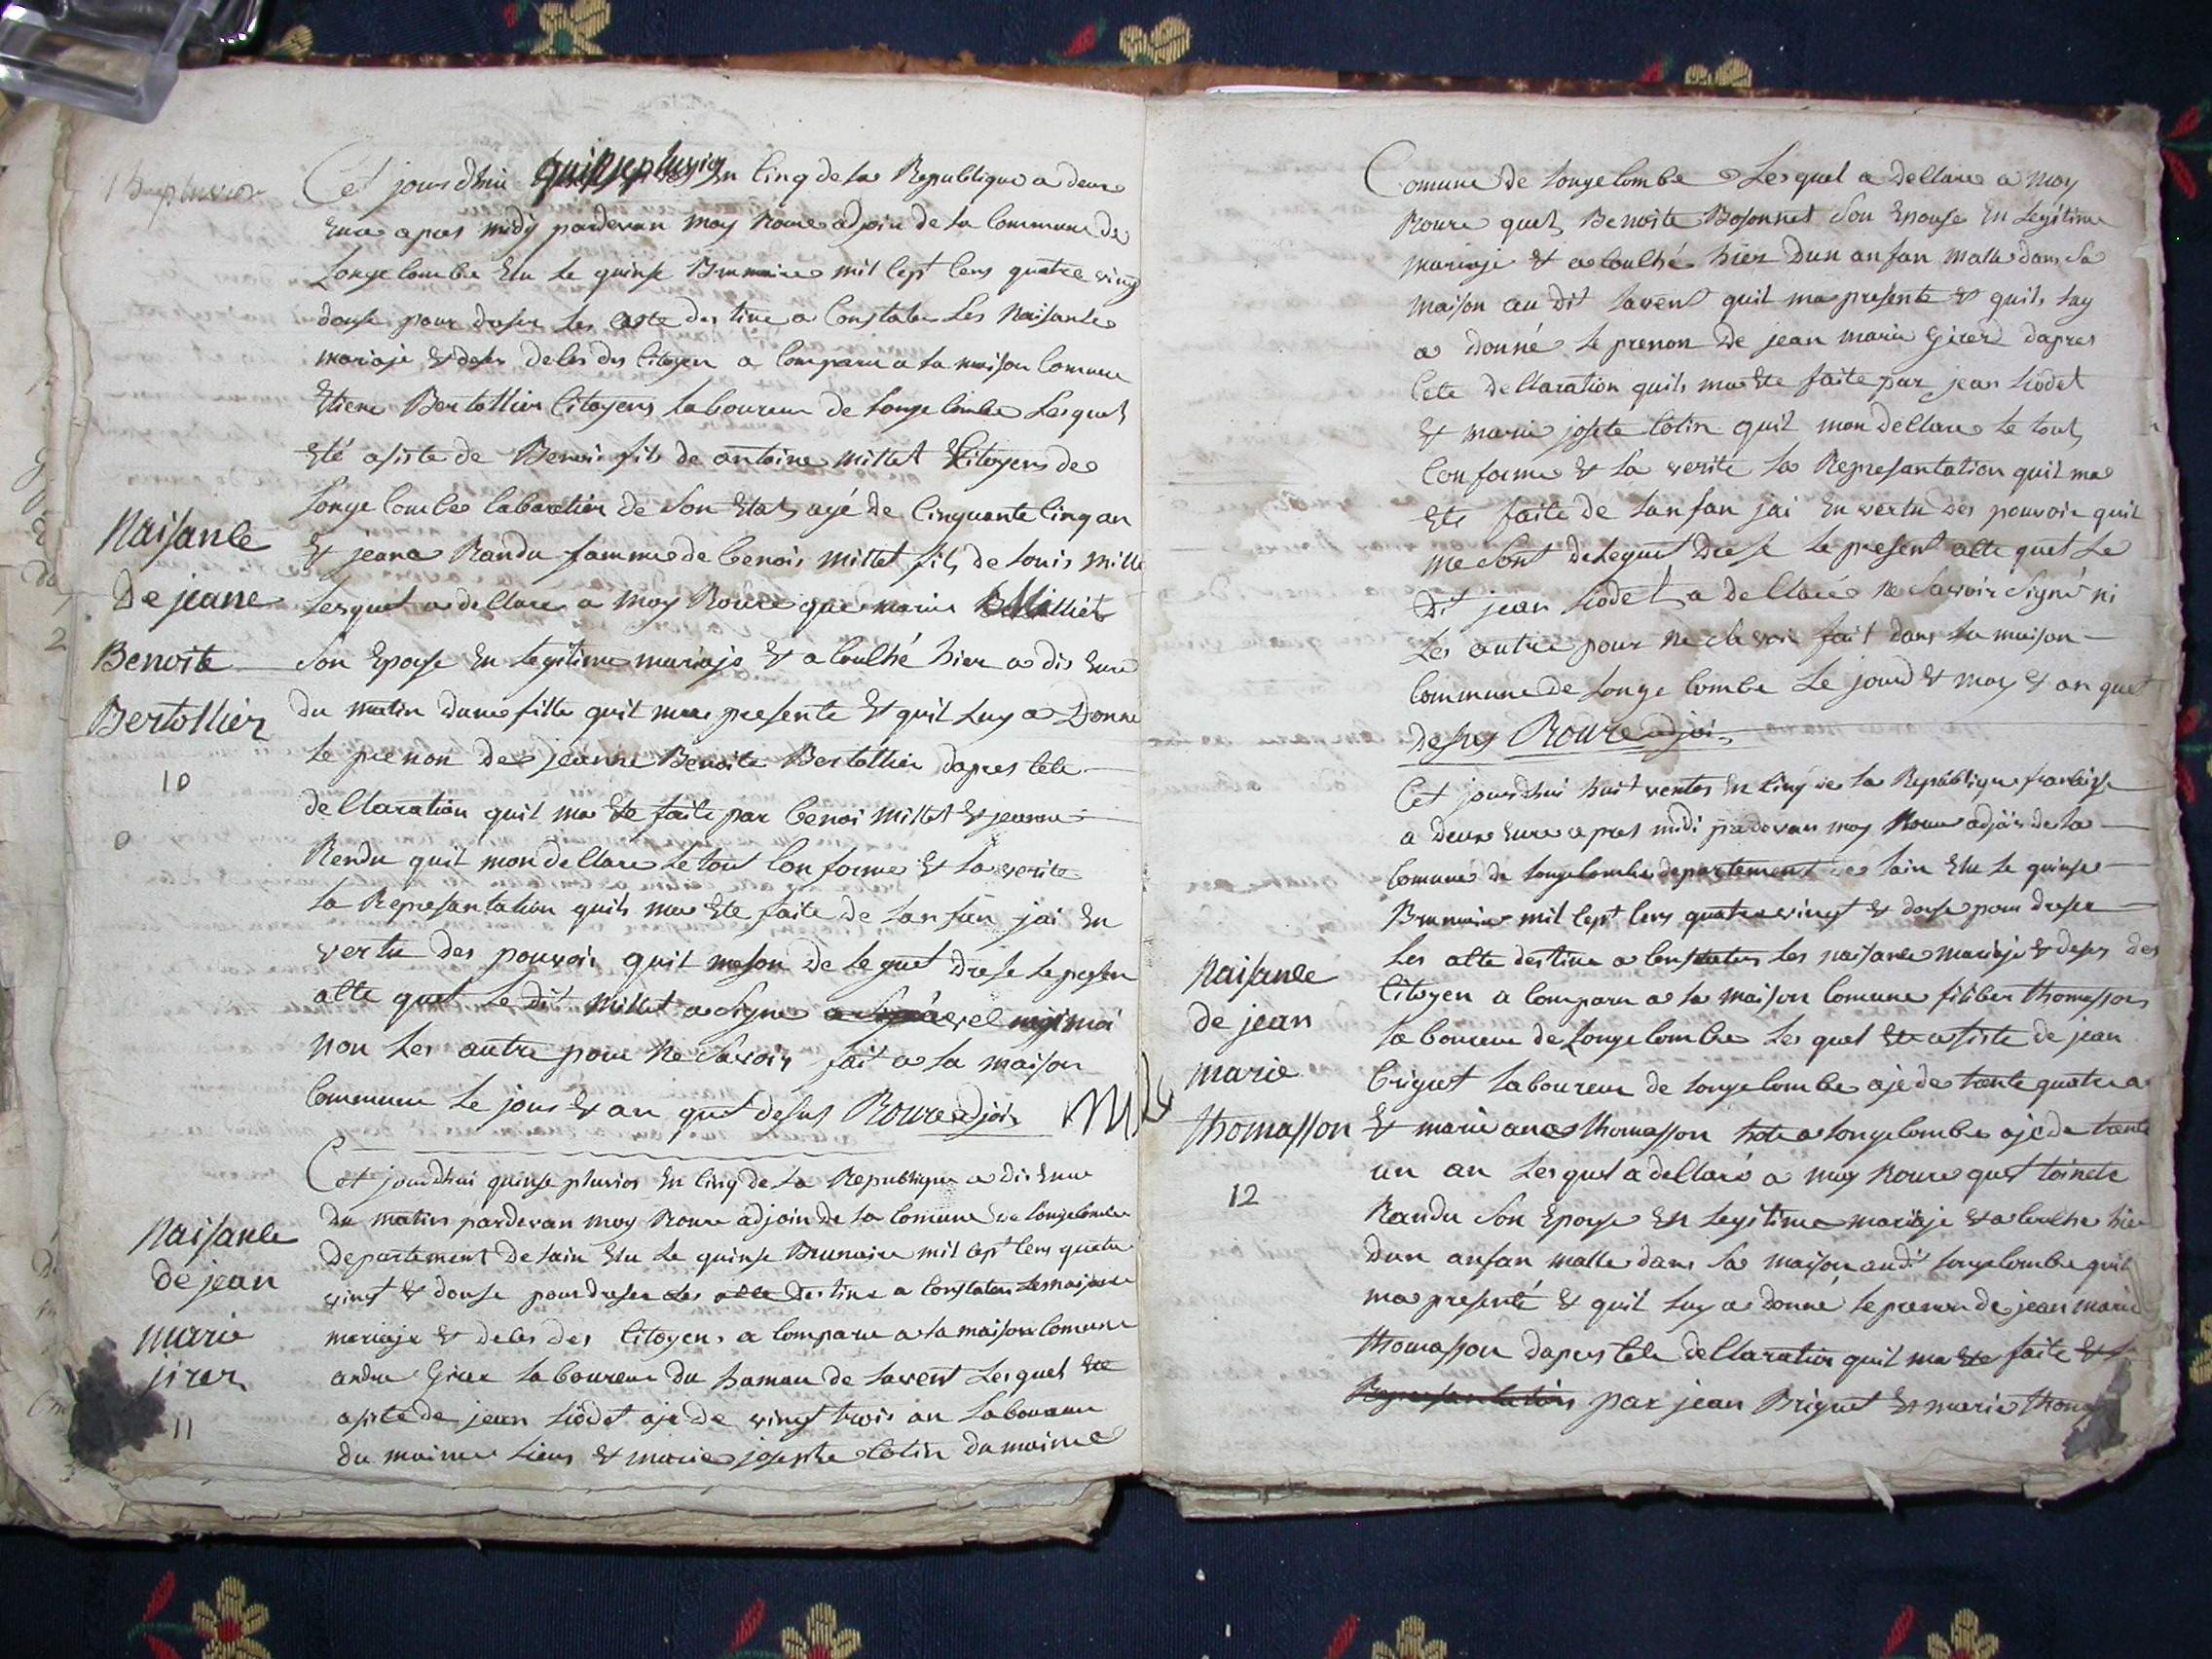 15 pluviose
Cet jourdhui quinse pluvios en cinq de la Republique a deux
eure apres midy pardevan moy Roure adjoin de la Commune de
Longecombe elu le quinse Brumaire mil cept cens quatre ving
douse pour dreser les acte destine a Constater les Naisance
mariaje et deses deces des Citoyen a comparu a la maison Comune
Etiene Bertollier Citoyens laboureur de longe combe Lesquel
eté asiste de Benoi fils de antoine millet Citoyens de
Longe combe cabaretier de son etat agé de cinquante cinq an
Naisance
Et jeana Randu famme de benois millet fils de louis mille
De jeane
Lesquel a dellare a moy Roure que marie Milliet
Benoite
son epouse en legitime mariaje et acouché hier a dis eure
Bertollier
du matin dune fille quil ma presente et quil luy a Donne
10
le prenon de jeanne Benoite Bertollier dapres cete
dellaration quil ma ete faite par benoi millet et jeanne
Rendu quil mon dellare le tout Conforme et la verite
la Represantation quils ma ete faite de lanfan jai en
vertu des pouvoir quil meson deleguet drese le presen
alte quet le dit millet a signe
non les autre pour ne savoir fait a la maison
Commune le jour et an quet desus Roure adjoin
Cet jourdhui quinse pluvios en cinq de la Republique a dis eure
du matin pardevan moy Roure adjoin de la comune de longecombe
Naisance
departement de lain elu le quinse Brumaire mil cept cens quatre
de jean
vingt et douse pour dreser les alte destine a constater les naisance
marie
mariaje et deces des Citoyens a comparu a la maison comune
jirer
andre Girer laboureur du hamau de lavent Lesquel ete
11
asiste de jean liodet aje de vingt trois an laboureur
du maime lieus et marie josephe Cotin du maime
Comune de longecombe Lesquel a dellare a moy
Roure quet Benoite Bosonnet son epouse en legitime
mariaje et acouché hier dun anfan malle dans sa
maison au dit lavent quil ma presente et quils luy
a donné le prenon de jean marie Girer dapres
Cete dellaration quils ma ete faite par jean liodet
et marie josete Cotin quil mon dellare le tout
Conforme et la verite la Represantation quil ma
ete faite de lanfan jai en vertu des pouvoir quil
me sont deleguet drese le present alte quet le
dit jean liodet a dellaré ne savoir signé ni
les autre pour ne savoir fait dans la maison
Commune de longe combe le jour et moy et an quet
desus Roure adjoin
Cet jourdhui huit ventos en cinq de la Republique francaise
a deux eure apres midi pardevan moy Roure adjoin de la
Comune de longecombe departement de lain elu le quinse
Brumaire mil cept cens quatre vingt et douse pour dreser
les alte destine a constater les naisance mariaje et deses des
Naisance
Citoyen a comparu a la maison comune filiber thomasson
de jean
laboureur de Longecombe les quel ete asiste de jean
marie
briguet laboureur de longecombe aje de trente quatre a
thomasson
et marie ane thomasson hote a longecombe aje de trente
12
un an lesquel a dellaré a moy Roure quet toinete
Randu son epouse en legitime mariaje et acouché hier
dun anfan malle dans sa maison audit longecombe quil
ma presenté et quil luy a donné le prenon de jean marie
thomasson dapres cete dellaration quil ma ete faite et la
Represantation par jean Briguet et marie thoma